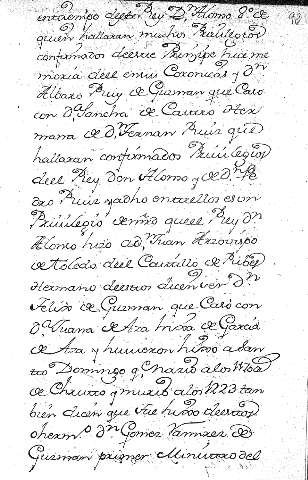 entiempo deeste Rey D.n Alonso 8.o de
quien hallaran muchos Priuilegios
confirmados deeste Prinçipe hize me
moria deel en sus Coronicas y D.n
Albaro Ruiz de Guzman que Casó
con D.a Sancha de Castro Her
mana de D.n Fernan Ruiz que
hallaran confirmados Priuilegios
deel Rey Don Alonso y de D.n Pe
dro Ruiz y adho entre ellos es vn
Priuilegio de mro que el Rey Dn
Alonso hizo a D.n Juan Arzouispo
de Toledo deel Castillo de Ribas
Hermano deestos dicen ser D.n
Felix de Guzman que Casó con
D.a Juana de Aza hixa de Garcia
de Aza y huuieron hixo a San
to Domingo q Nazio a los 1170 a
de Christo y murio a los 1223 tan
bien dicen que fue hixo deestos
o herm.o D.n Gomez Ramirez de
Guzman primer Ministro del